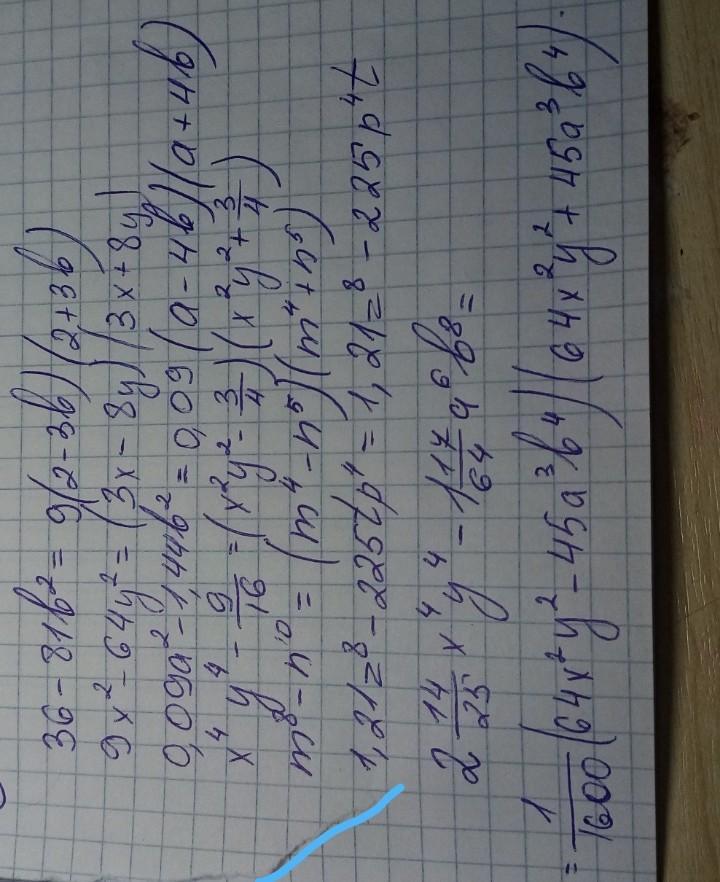 36 - 81b² = 9(2-3b)(2+3b)
9x² - 64y² = (3x - 8y)(3x + 8y)
0,09a² - 1,44b² = 0,09(a - 4b)(a + 4b)
x⁴y⁴ - 9/16 = (x²y² - 3/4)(x²y² + 3/4)
m⁸ - n¹⁰ = (m⁴ - n⁵)(m⁴ + n⁵)
1,21z⁸ - 225tp⁴ = 1,21z⁸ - 225p⁴t
2 14/25 x⁴y⁴ - 1 17/64 a⁶b⁸ =
= 1/1600 (64x²y² - 45a³b⁴)(64x²y² + 45a³b⁴).